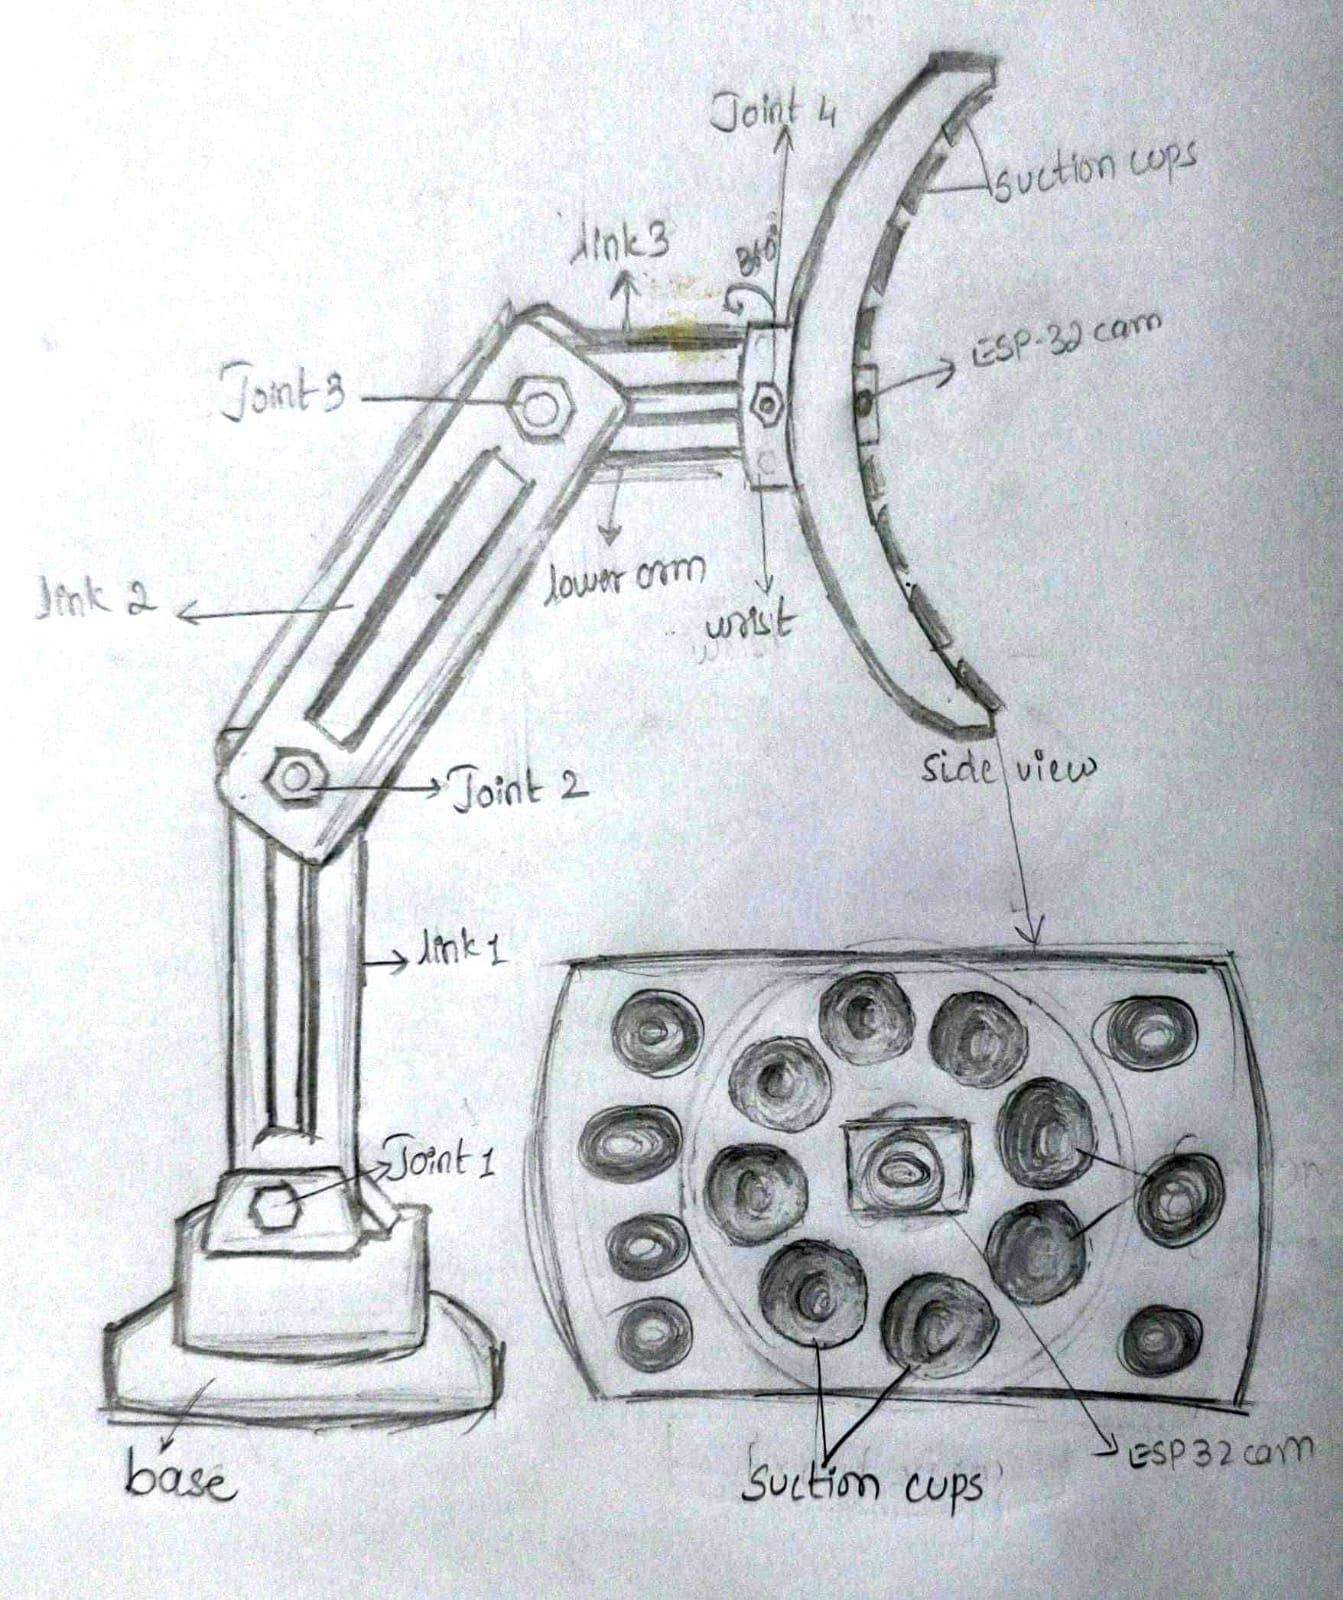 Joint 4
suction cups
link 3
360°
ESP-32 cam
Joint 3
lower arm
link 2
wrist
side view
Joint 2
link 1
Joint 1
base
suction cups
ESP32 cam